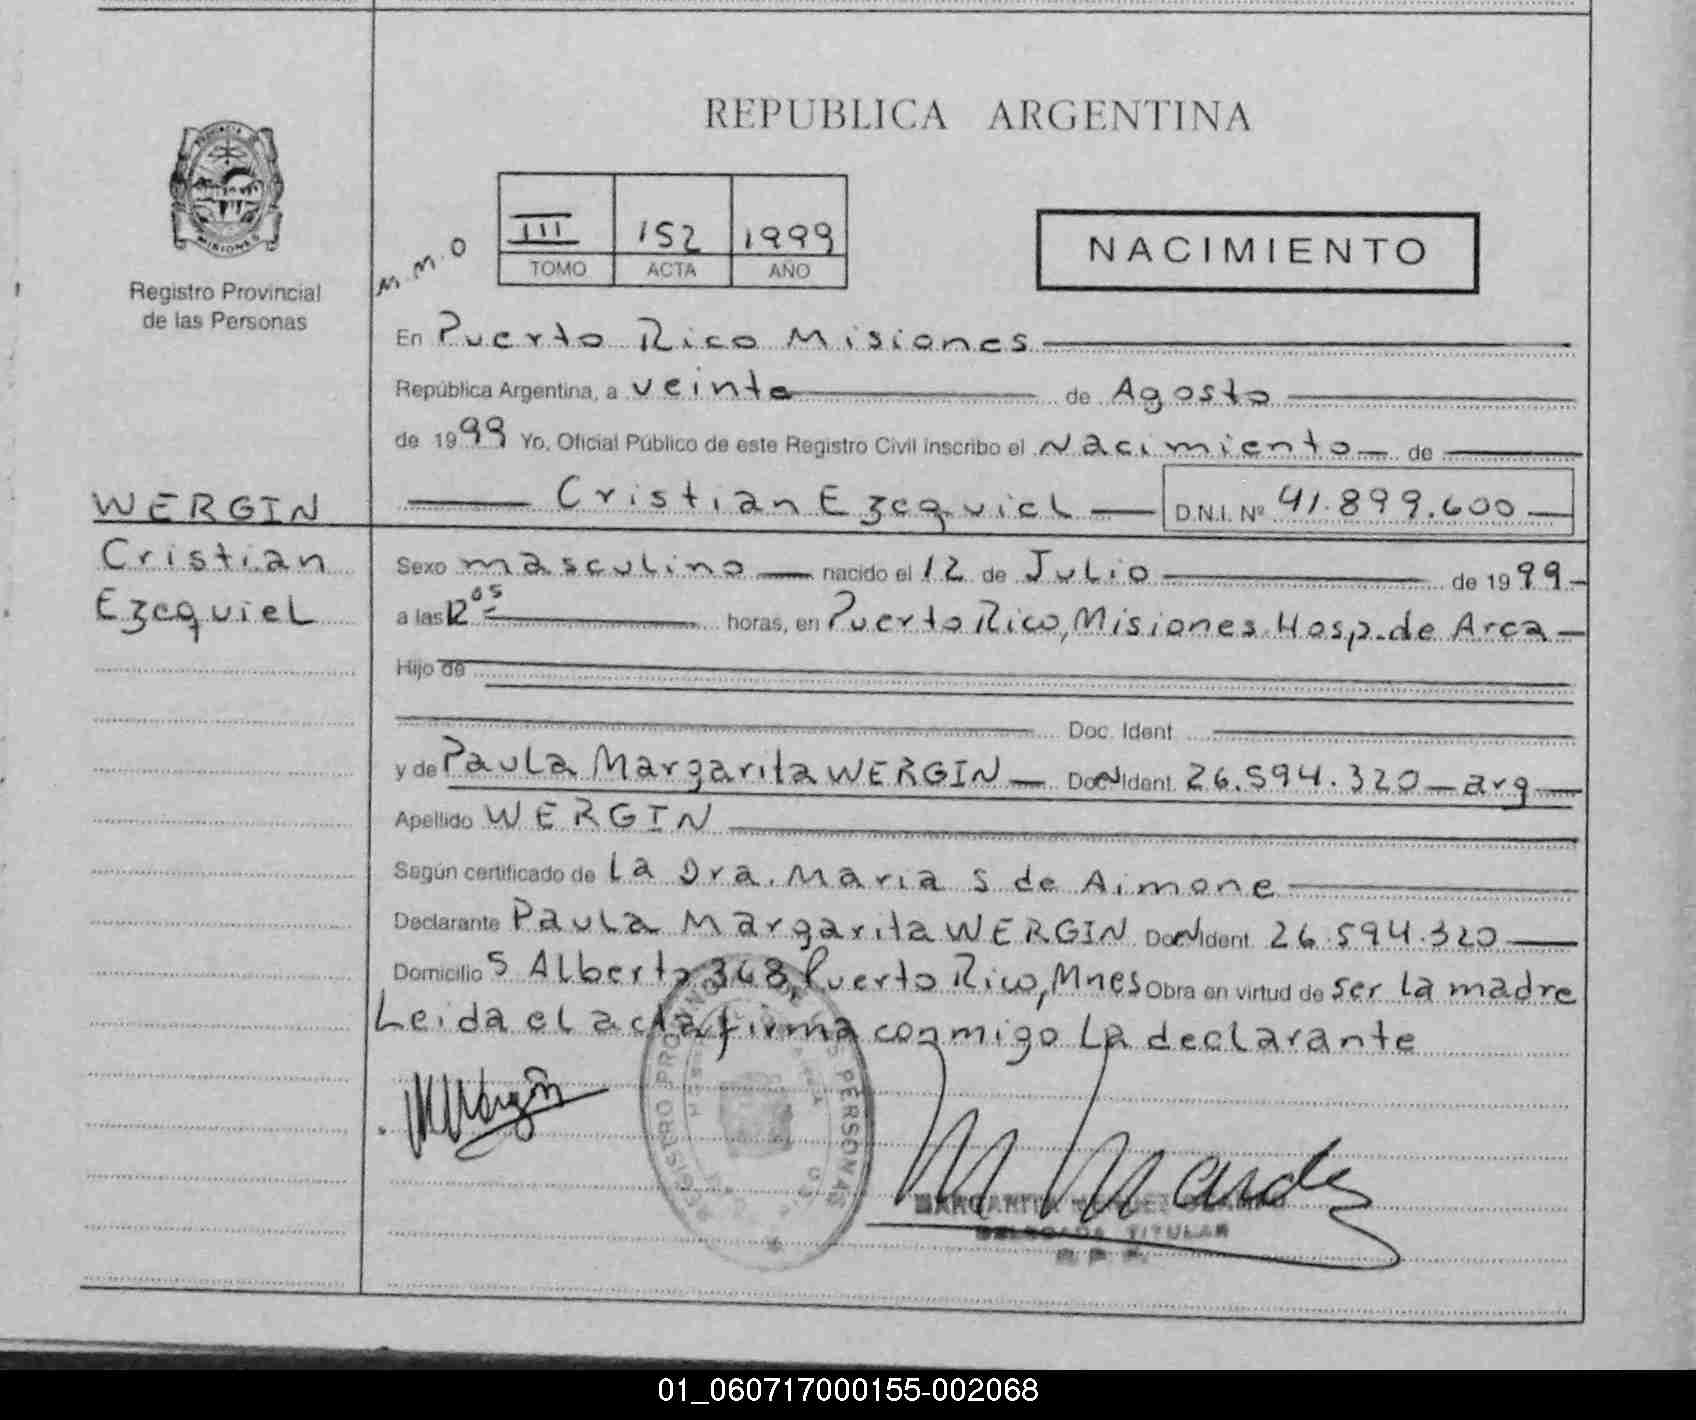 REPUBLICA ARGENTINA
PROVINCIA DE
MISIONES
Registro Provincial
de las Personas
M.M.O
III 152 1999
TOMO ACTA AÑO
NACIMIENTO
En Puerto Rico Misiones
República Argentina, a veinte de Agosto
de 1999 Yo, Oficial Público de este Registro Civil inscribo el Nacimiento de
Cristian Ezequiel D.N.I. Nº 41.899.600
WERGIN
Cristian
Ezequiel
Sexo masculino nacido el 12 de Julio de 1999
a las 12 05 horas, en Puerto Rico, Misiones Hosp. de Area
Hijo de
Doc. Ident.
y de Paula Margarita WERGIN Doc. Ident. 26.594.320 arg
Apellido WERGIN
Según certificado de La Dra. Maria S de Aimone
Declarante Paula Margarita WERGIN Doc. Ident. 26.594.320
Domicilio S Alberto 368 Puerto Rico, Mnes Obra en virtud de ser la madre
Leida el acta firma conmigo la declarante
REGISTRO PERSONAS
MARGARITA
DELEGADA TITULAR
R. P. P.
01_060717000155-002068